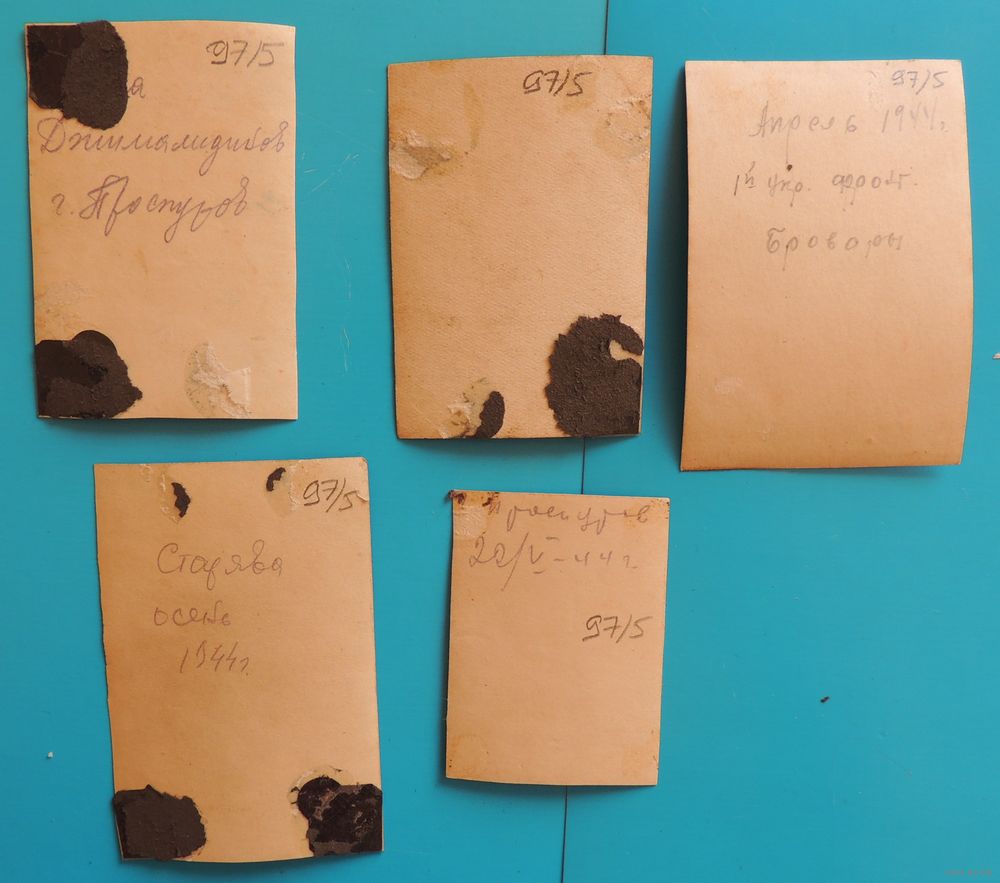 97/5
а
Джималидинов
г. Проскуров
97/5
97/5
Апрель 1944г.
1й Укр. фронт.
Бровары
97/5
Старява
осень
1944г.
Проскуров
22/V-44г.
97/5